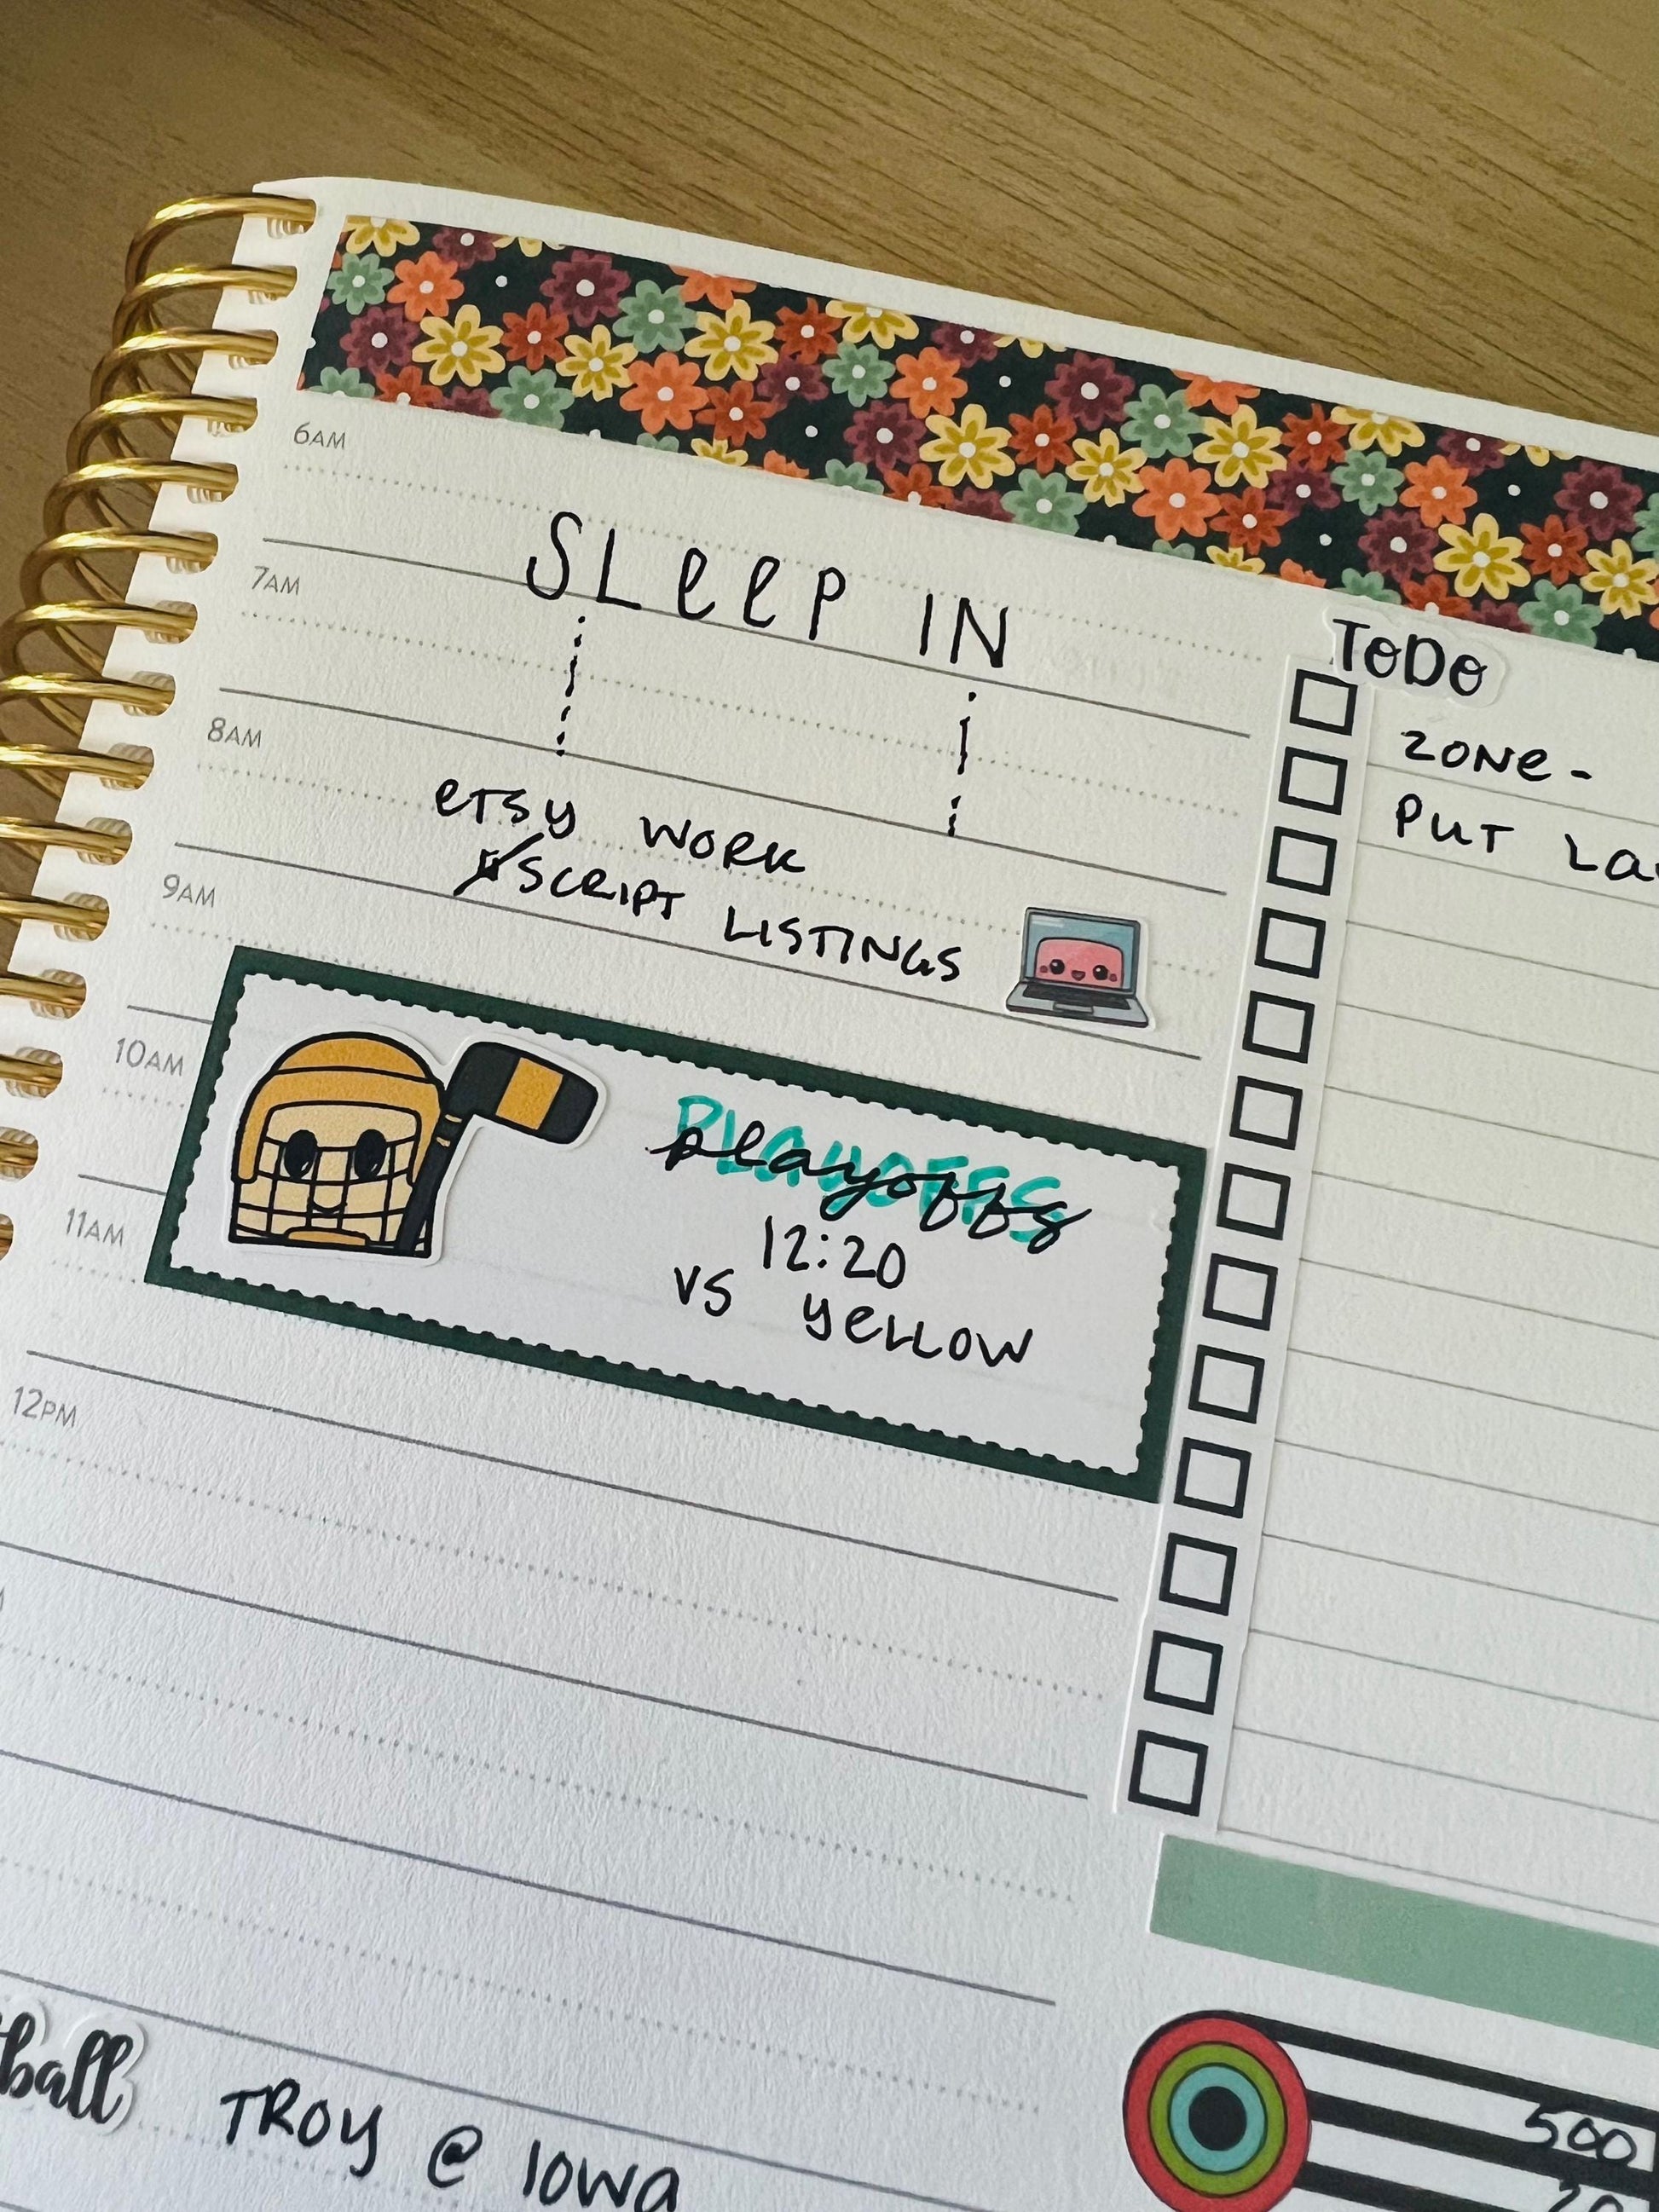 6AM
SLeeP IN
7AM
8AM
eTsy WORK
SCRIPT LISTINGS
9AM
10AM
PLAYOFFS
playoffs
12:20
vs yellow
11AM
12PM
ToDo
ZONe-
PUT
ball
TROY @ Iowa
500